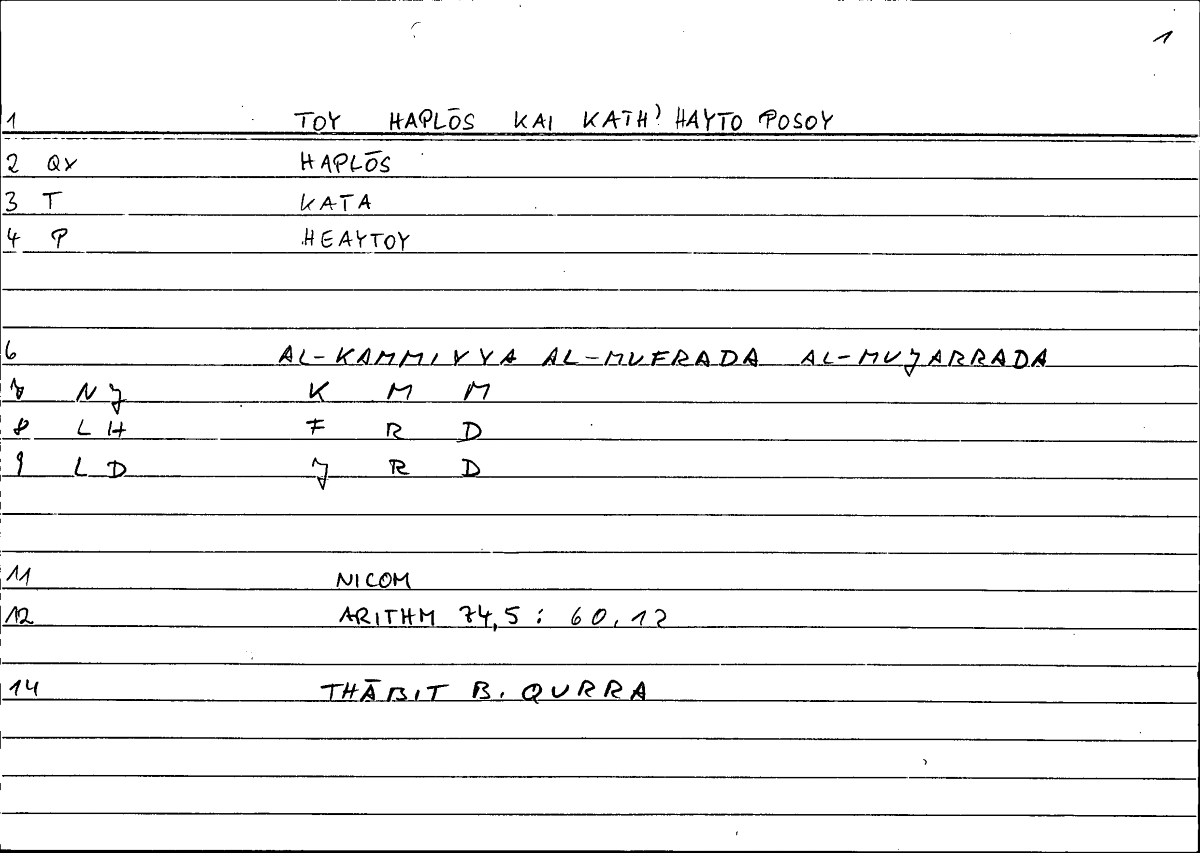 1
1 TOY HAPLŌS KAI KATH' HAYTO POSOY
2 QX HAPLŌS
3 T KATA
4 P HEAYTOY
6 AL-KAMMIYYA AL-MUFRADA AL-MUJARRADA
7 NJ K M M
8 LH F R D
9 LD J R D
11 NICOM
12 ARITHM 74,5 : 60.12
14 THĀBIT B. QURRA